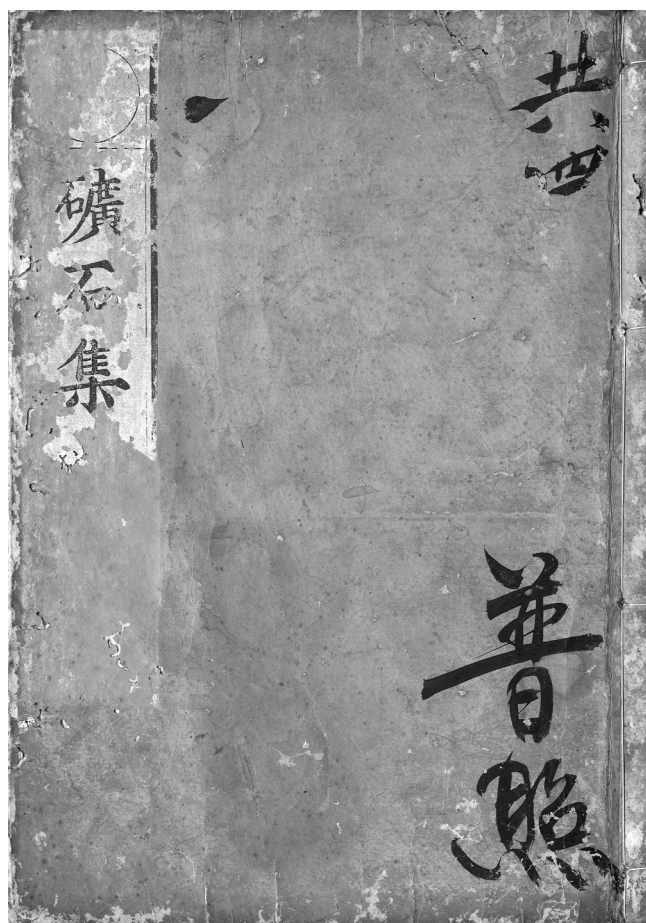 共四
普照
礦石集